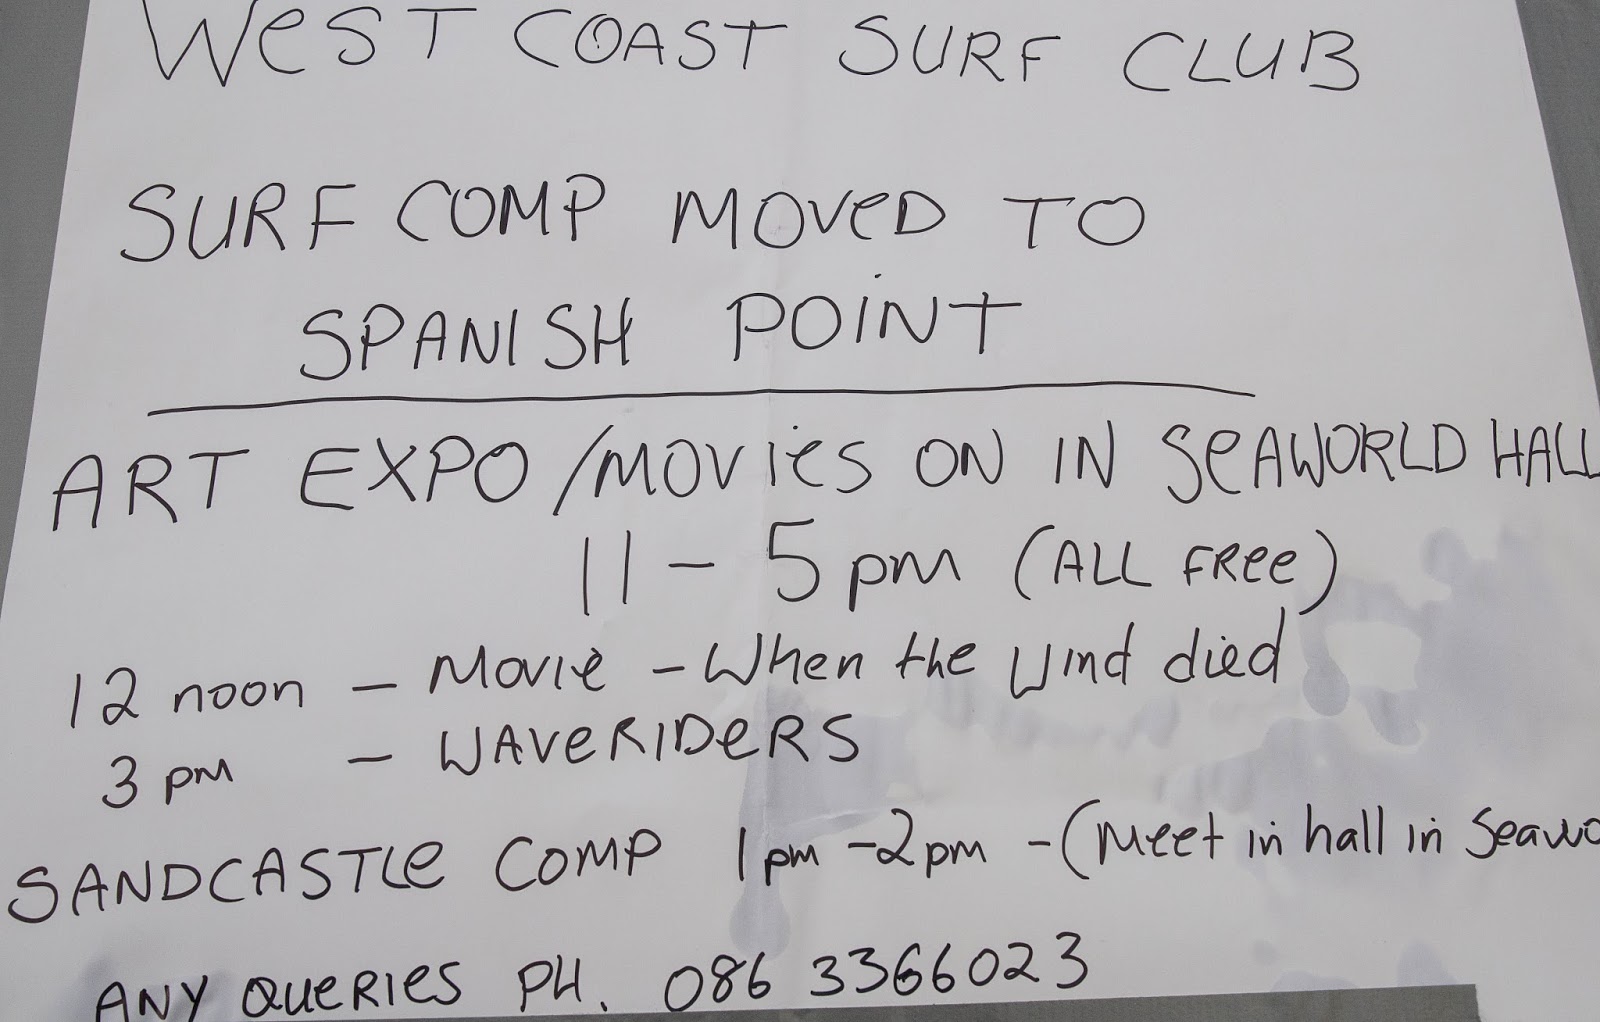 WeST COAST SURF CLUB
SURF COMP MOVeD TO
SPANISH POiNT
ART EXPO / MOVies ON IN SeAWORLD HALL
11 - 5 pm (ALL FRee)
12 noon - Movie - When the Wind died
3 pm - WAVeRIDeRS
SANDCASTLe COMP 1 pm - 2 pm - (Meet in hall in Seawo
ANY QUeRIES PH. 086 3366023